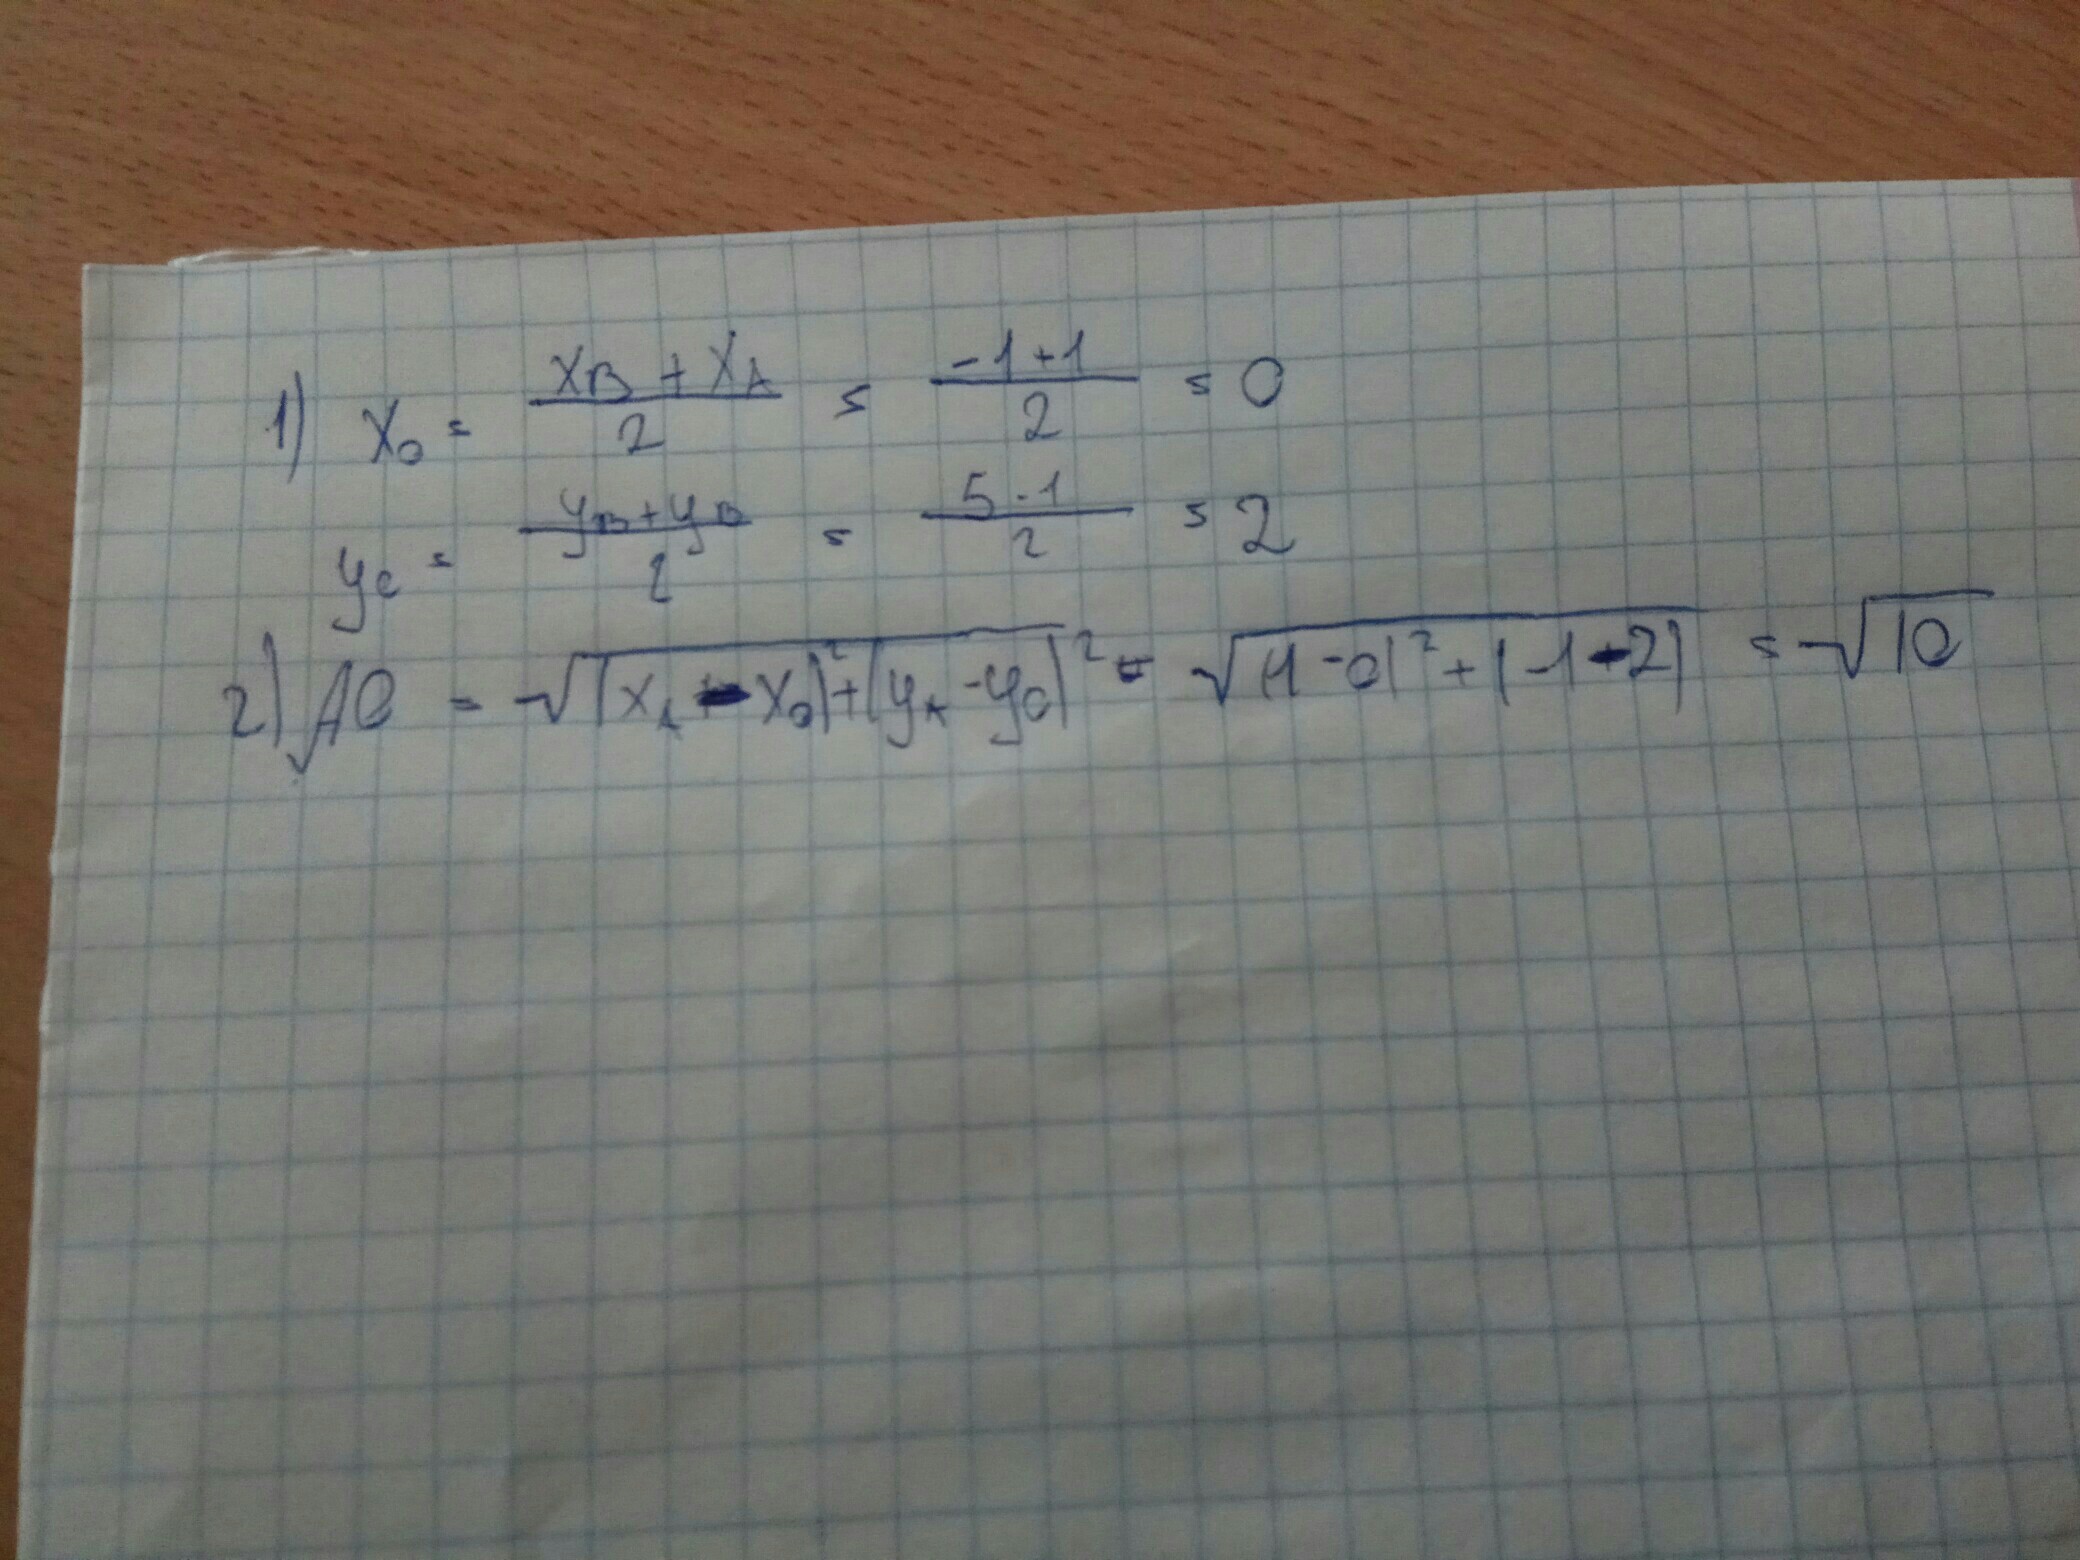 1) x₀ = (x_B + x_A)/2 = (-1+1)/2 = 0
y_c = (y_B + y_B)/2 = (5-1)/2 = 2
2) AO = √(|x_A - x₀|² + |y_A - y₀|²) = √(|1-0|² + |-1-2|) = √10